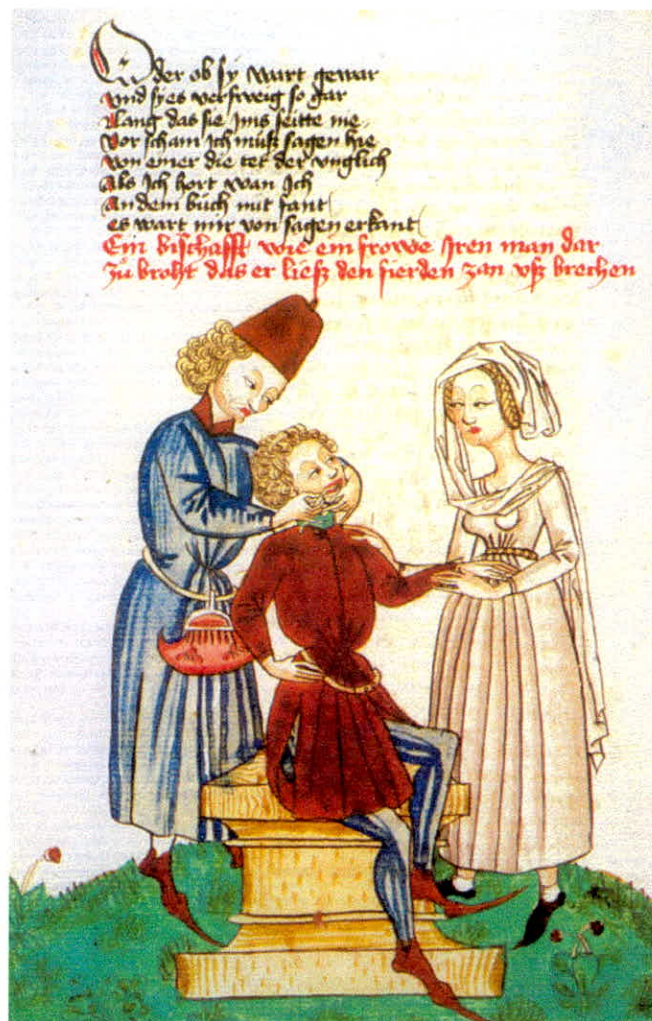 Oder ob sy wart gewar
Vnd sy es versweig so gar
Lang das sie Ims seitte nie
Vor scham Ich muß sagen hie
Von einer die tet der vnglich
Als Ich hort wan Ich
An dem buch nut fant
es wart mir von sagen erkant
Ein bischafft wie ein frowe Iren man dar
zů broht das er ließ den fierden zan vß brechen